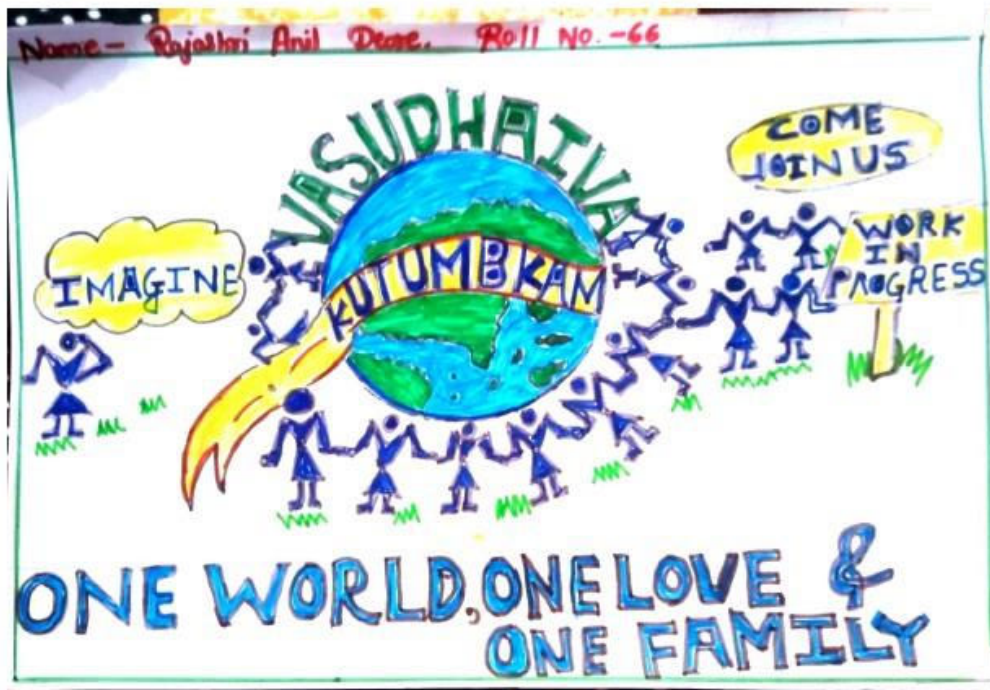 Name- Rajashri Anil Deore. Roll No.-66
VASUDHAIVA
KUTUMBKAM
IMAGINE
COME
JOIN US
WORK
IN
PROGRESS
ONE WORLD, ONE LOVE &
ONE FAMILY